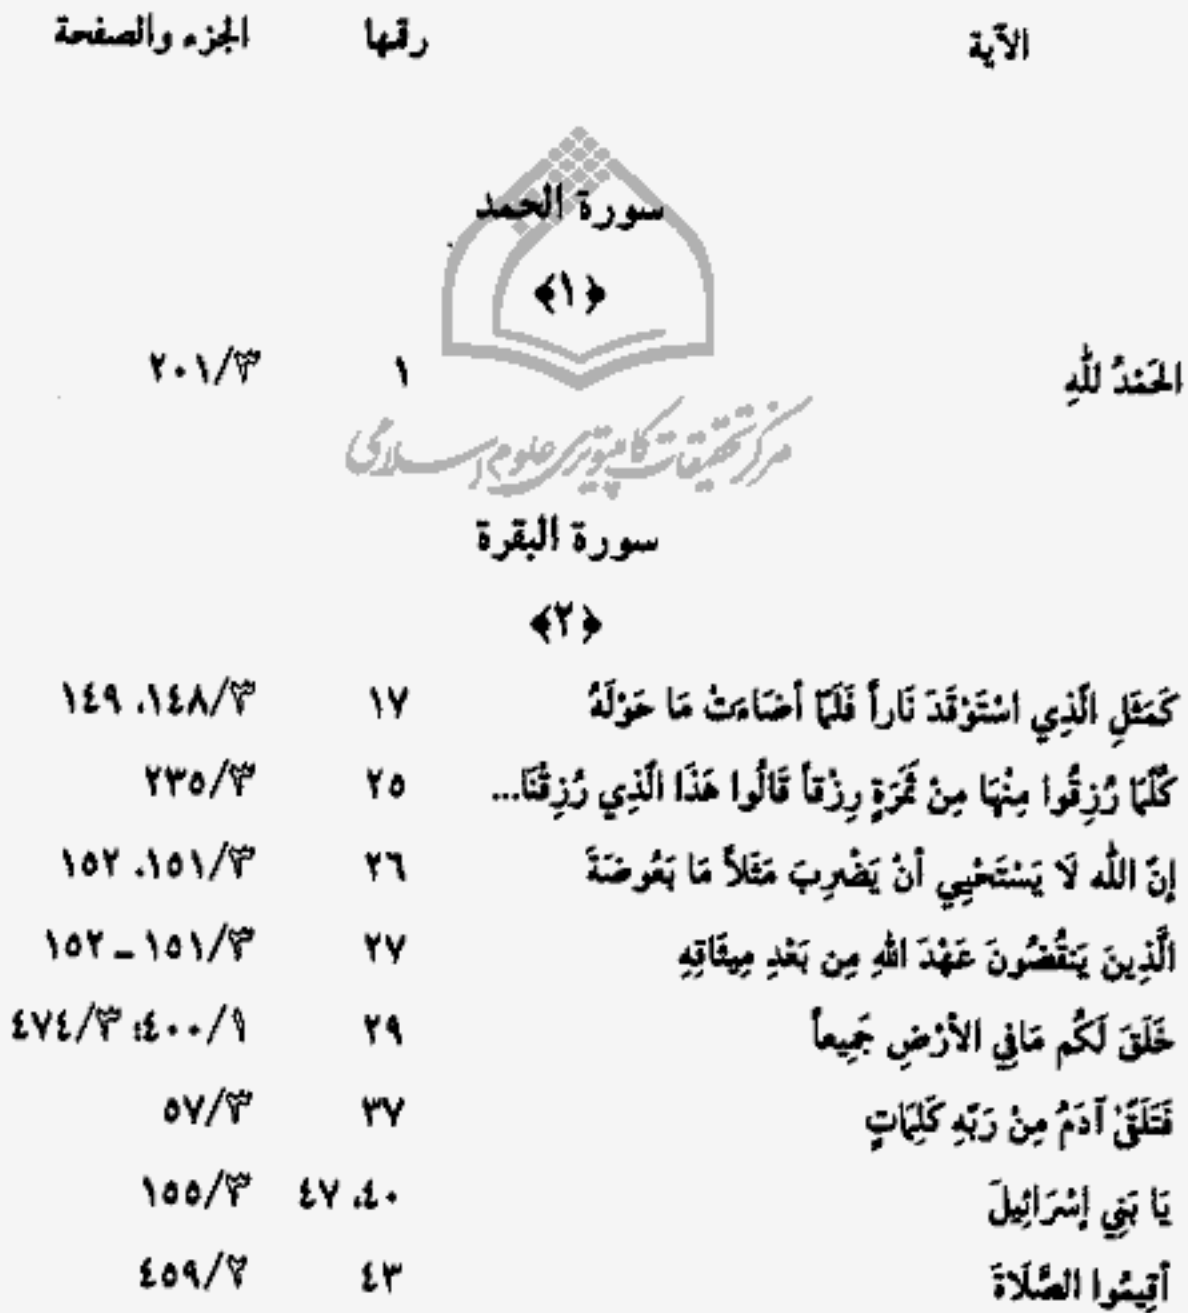 الآية رقمها الجزء والصفحة
سورة الحمد
﴿١﴾
الحَمْدُ للّٰهِ ١ ٣/٢٠١
مركز تحقيقات كامپيوتری علوم اسلامی
سورة البقرة
﴿٢﴾
كَمَثَلِ الَّذِي اسْتَوْقَدَ نَاراً فَلَمَّا أَضَاءَتْ مَا حَوْلَهُ ١٧ ٣/١٤٨، ١٤٩
كُلَّمَا رُزِقُوا مِنْهَا مِنْ ثَمَرَةٍ رِزْقاً قَالُوا هَذَا الَّذِي رُزِقْنَا... ٢٥ ٣/٢٣٥
إنَّ اللّٰه لَا يَسْتَحْيِي أنْ يَضْرِبَ مَثَلاً مَا بَعُوضَةً ٢٦ ٣/١٥١، ١٥٢
الَّذِينَ يَنْقُضُونَ عَهْدَ اللهِ مِن بَعْدِ مِيثَاقِهِ ٢٧ ٣/١٥١ ـ ١٥٢
خَلَقَ لَكُم مَافِي الأرْضِ جَمِيعاً ٢٩ ١/٤٠٠؛ ٣/٤٧٤
فَتَلَقَّىٰ آدَمُ مِنْ رَبِّهِ كَلِمَاتٍ ٣٧ ٣/٥٧
يَا بَنِي إسْرَائِيلَ ٤٠، ٤٧ ٣/١٥٥
أقِيمُوا الصَّلَاةَ ٤٣ ٢/٤٥٩